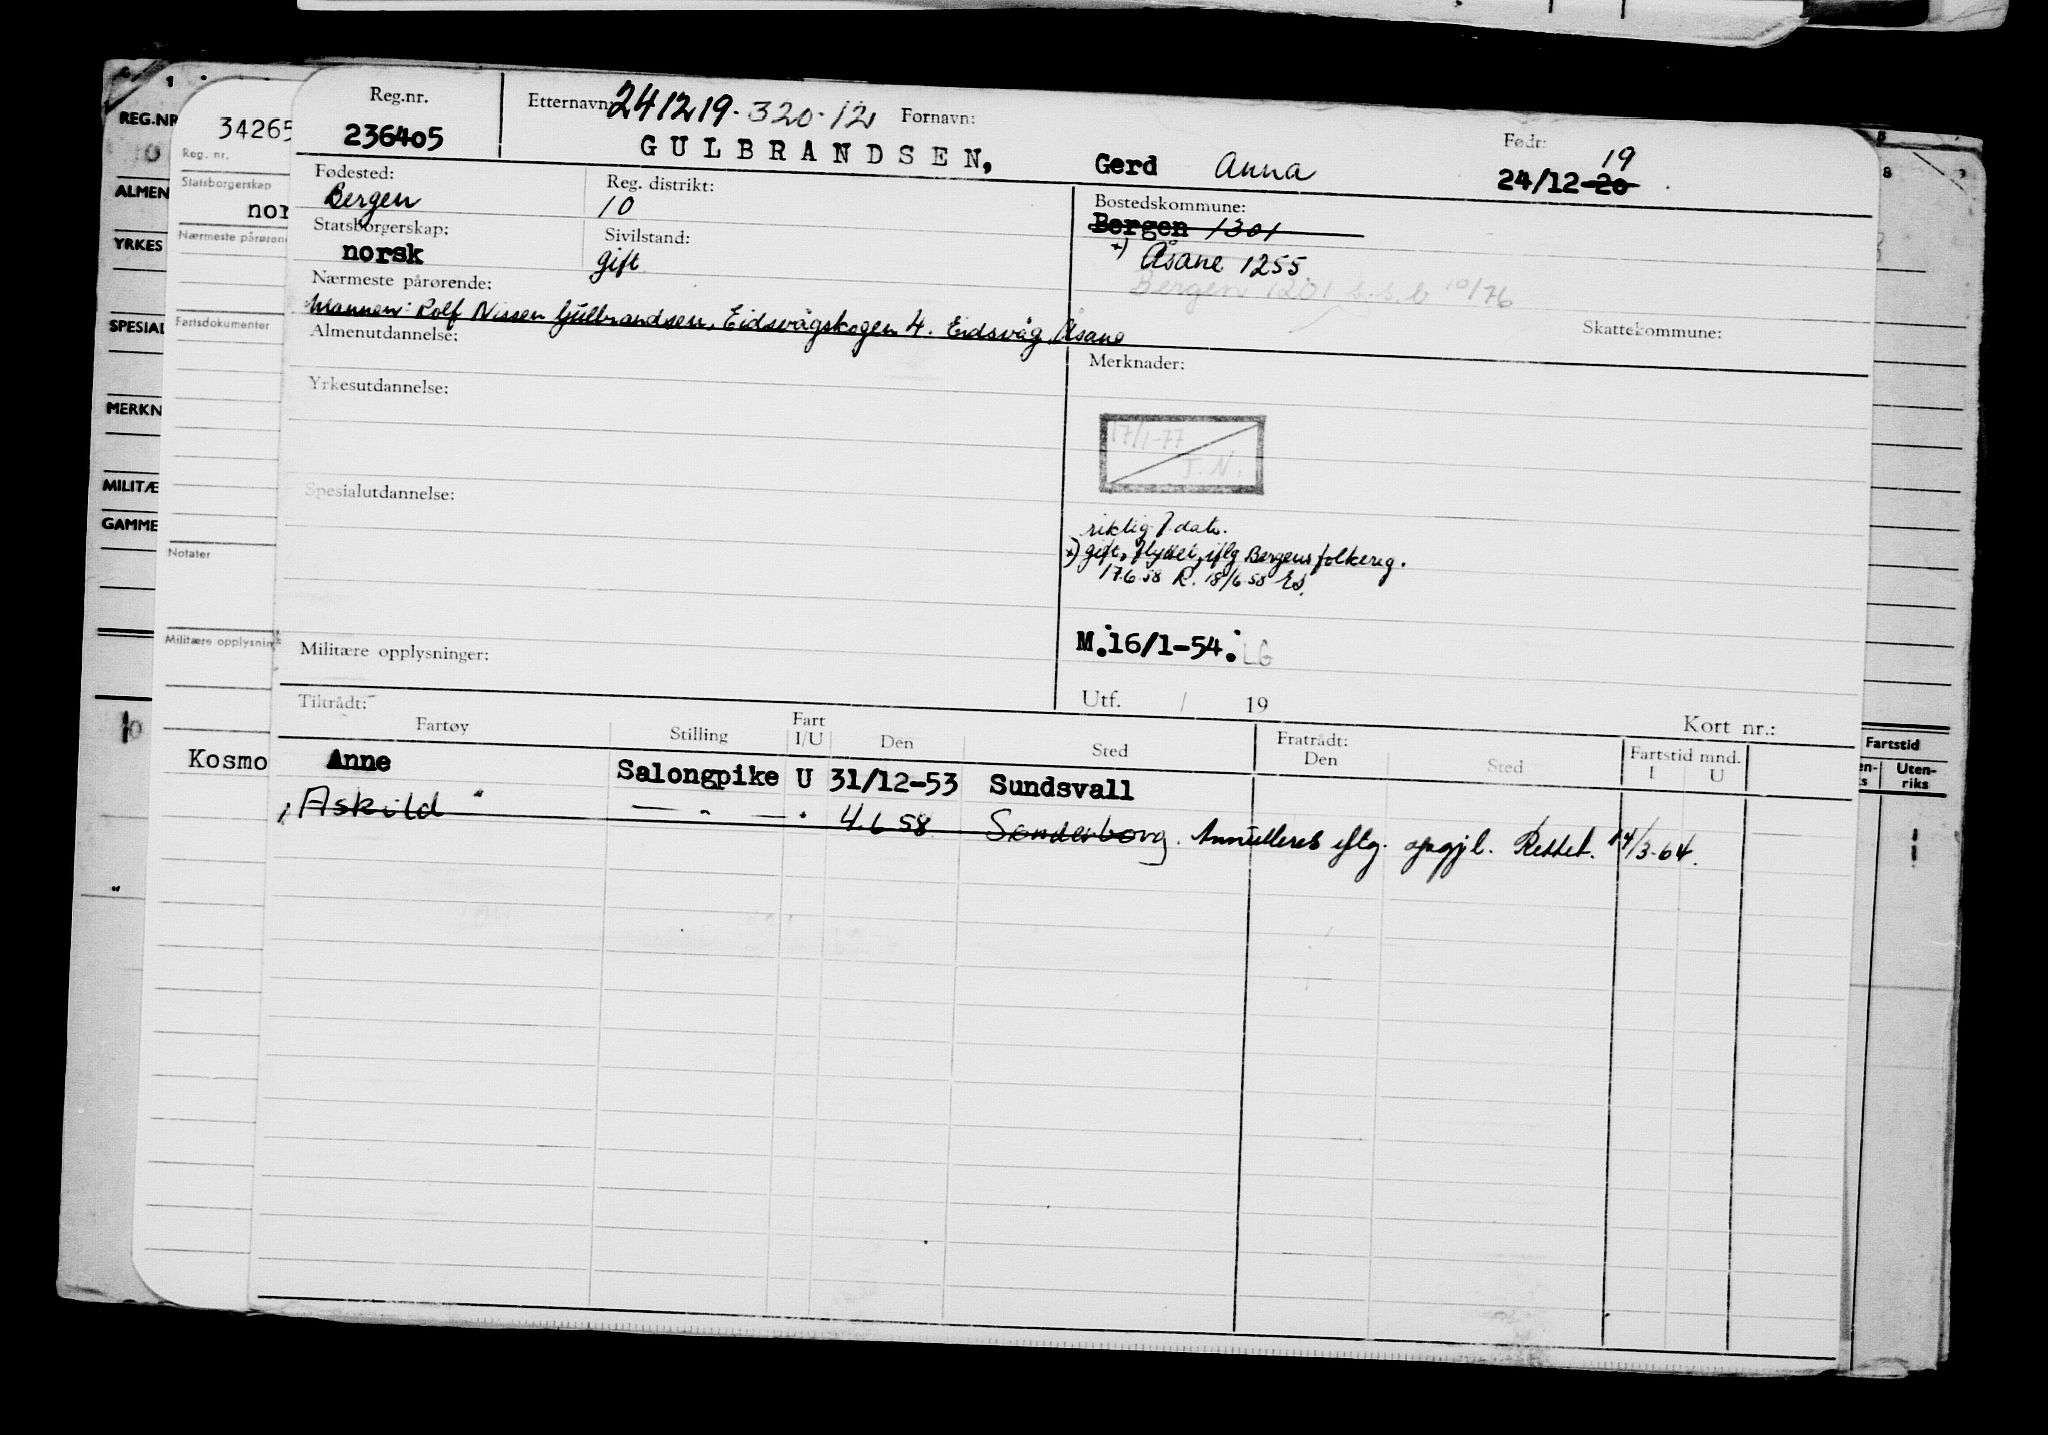 REG.NR
ALMEN
YRKES
SPESIAL
MERKN
MILITÆ
GAMME
34265
Reg. nr.
Statsborgerskap
nor
Nærmeste pårøren
Fartsdokumenter
Notater
Militære opplysnin
Kosmo
Reg.nr.
236405
Etternavn 241219. 320.12 Fornavn:
GULBRANDSEN, Gerd Anna
Født: 19
24/12-20
Fødested:
Bergen
Reg. distrikt:
10
Bostedskommune:
Bergen 1301
Statsborgerskap:
norsk
Sivilstand:
gift
x) Åsane 1255
Bergen 1201 s.s.b 10/76
Nærmeste pårørende:
Mannen: Rolf Nissen Gulbrandsen, Eidsvågskogen 4. Eidsvåg Åsane
Skattekommune:
Almenutdannelse:
Merknader:
Yrkesutdannelse:
17/1-77
T.N.
Spesialutdannelse:
riktig f dato.
x) gift, flyttet, iflg Bergens folkereg.
17.6.58 R. 18/6 58 Es.
Militære opplysninger:
M.16/1-54. LG
Utf. / 19
Kort nr.:
Tiltrådt:
Fartøy Stilling Fart I/U Den Sted Fratrådt: Den Sted Fartstid mnd. I U
Anne Salongpike U 31/12-53 Sundsvall
Askild " — " — 4.6 58 Sønderborg. Annulleres iflg. oppgjl. Rettet. 14/3-64.
Fartstid
Uten-
riks